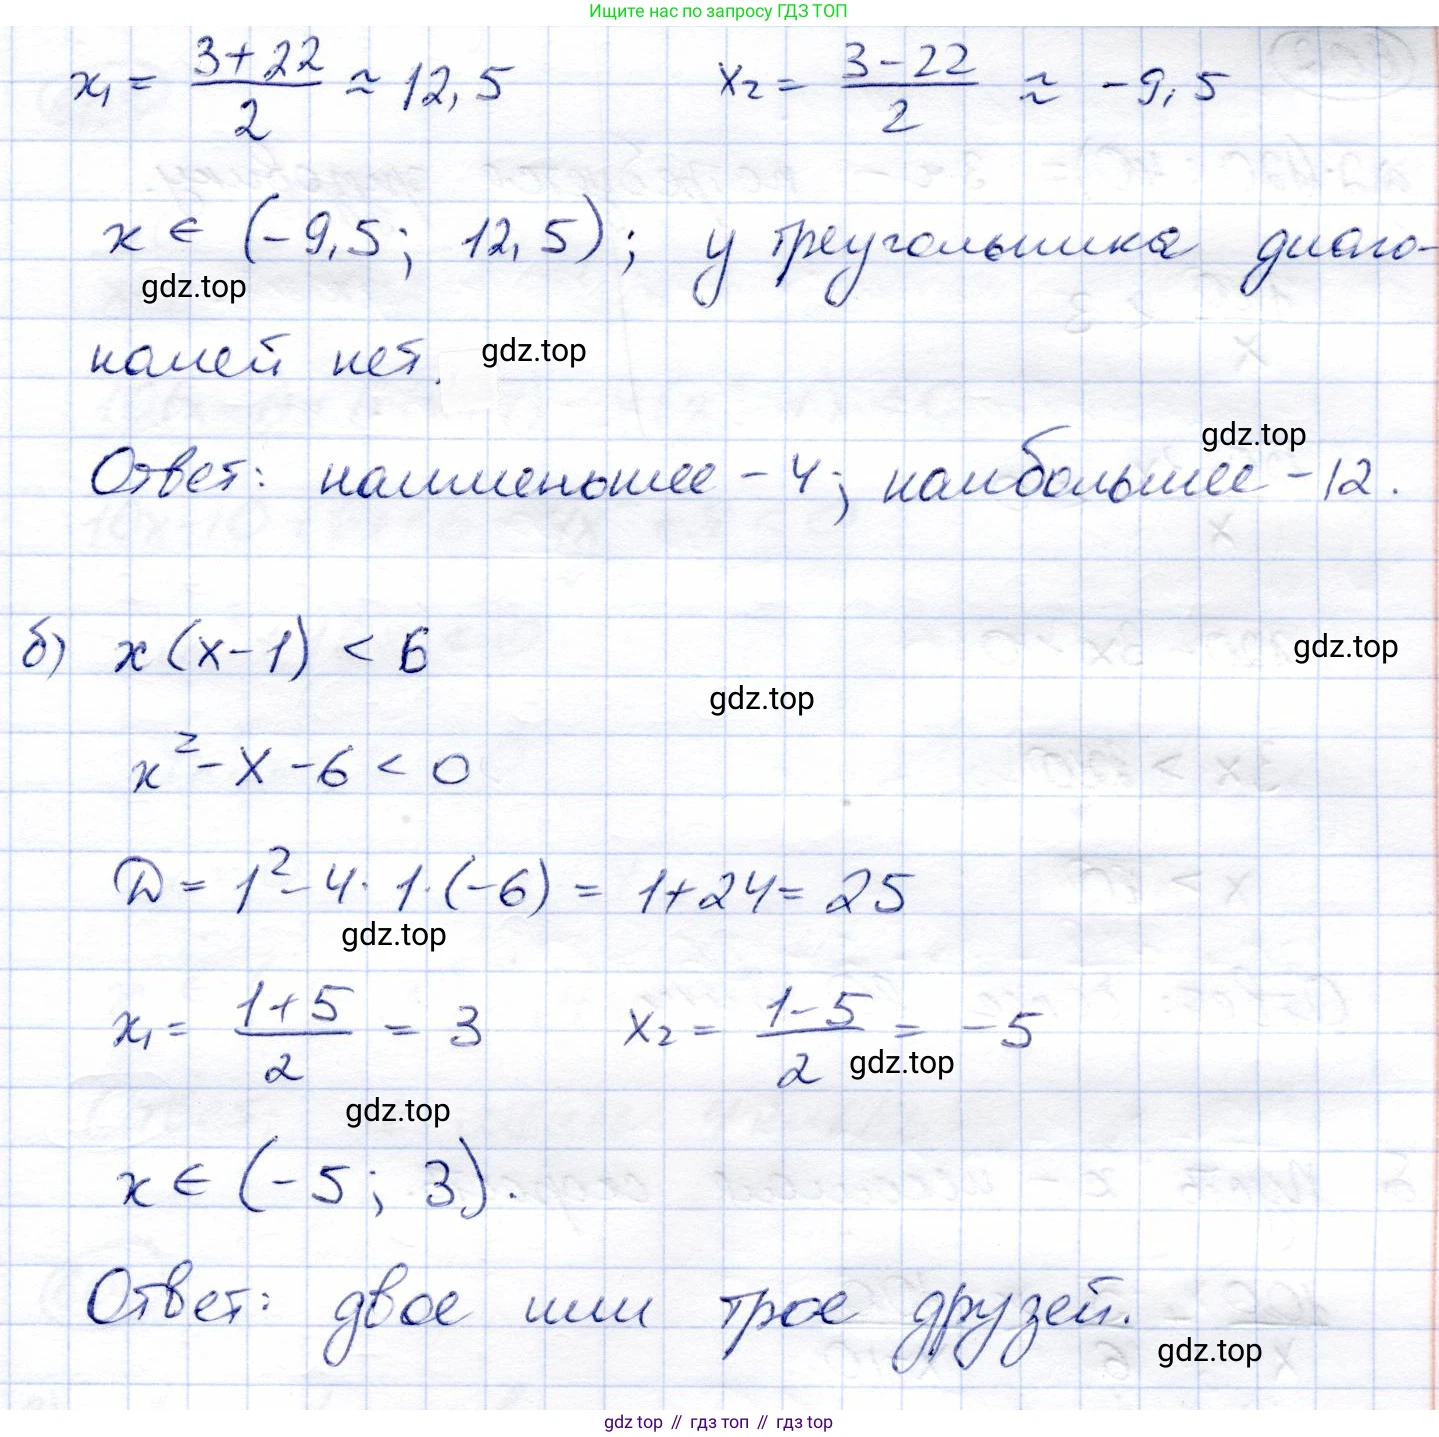 Ищите нас по запросу ГДЗ ТОП
x₁ = (3+22)/2 ≈ 12,5 x₂ = (3-22)/2 ≈ -9,5
x ∈ (-9,5; 12,5); у треугольника диаго-
gdz.top
налей нет.
gdz.top
gdz.top
Ответ: наименьшее - 4; наибольшее - 12.
б) x(x-1) < 6
gdz.top
gdz.top
x² - x - 6 < 0
D = 1² - 4 · 1 · (-6) = 1+24 = 25
gdz.top
x₁ = (1+5)/2 = 3 x₂ = (1-5)/2 = -5
gdz.top
gdz.top
x ∈ (-5; 3).
Ответ: двое или трое друзей.
gdz.top
gdz top // гдз топ // гдз top